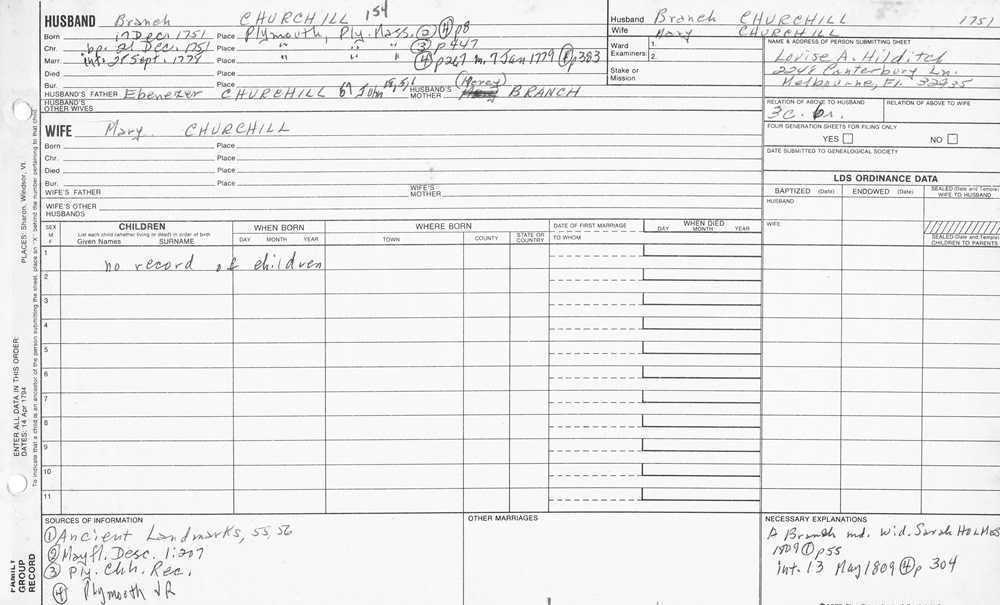 HUSBAND Branch CHURCHILL 154
Born 17 Dec. 1751 Place Plymouth, Ply. Mass. (2) (4) p8
Chr. bp. 21 Dec. 1751 Place " " " (3) p447
Marr. int. 28 Sept. 1779 Place " " " (4) p267 m. 7 Jan 1779 p383
Died Place
Bur. Place
HUSBAND'S FATHER Ebenezer CHURCHILL John HUSBAND'S MOTHER (Mercy) BRANCH
HUSBAND'S OTHER WIVES
WIFE Mary CHURCHILL
Born Place
Chr. Place
Died Place
Bur. Place
WIFE'S FATHER WIFE'S MOTHER
WIFE'S OTHER HUSBANDS
Husband Branch CHURCHILL 1751
Wife Mary CHURCHILL
Ward Examiners: 1. 2.
Stake or Mission
NAME & ADDRESS OF PERSON SUBMITTING SHEET
Louise A. Hilditch
2248 Canterbury Ln.
Melbourne, Fl. 32935
RELATION OF ABOVE TO HUSBAND RELATION OF ABOVE TO WIFE
3c. 6r.
FOUR GENERATION SHEETS FOR FILING ONLY
YES NO
DATE SUBMITTED TO GENEALOGICAL SOCIETY
LDS ORDINANCE DATA
BAPTIZED (Date) ENDOWED (Date) SEALED (Date and Temple) WIFE TO HUSBAND
HUSBAND
WIFE
SEALED (Date and Temple) CHILDREN TO PARENTS
SEX M F
CHILDREN
List each child (whether living or dead) in order of birth
Given Names SURNAME
WHEN BORN
DAY MONTH YEAR
WHERE BORN
TOWN COUNTY STATE OR COUNTRY
DATE OF FIRST MARRIAGE
TO WHOM
WHEN DIED
DAY MONTH YEAR
1 no record of children
2
3
4
5
6
7
8
9
10
11
SOURCES OF INFORMATION
(1) Ancient Landmarks, 55, 56
(2) Mayfl. Desc. 1:207
(3) Ply. Chh. Rec.
(4) Plymouth VR
OTHER MARRIAGES
NECESSARY EXPLANATIONS
A Branch md. wid. Sarah HOLMES
1809 (1) p55
int. 13 May 1809 (4) p 304
PLACES: Sharon, Windsor, Vt.
ENTER ALL DATA IN THIS ORDER:
DATES: 14 Apr 1794
To indicate that a child is an ancestor of the person submitting the sheet, place an "X" behind the number pertaining to that child.
FAMILY GROUP RECORD